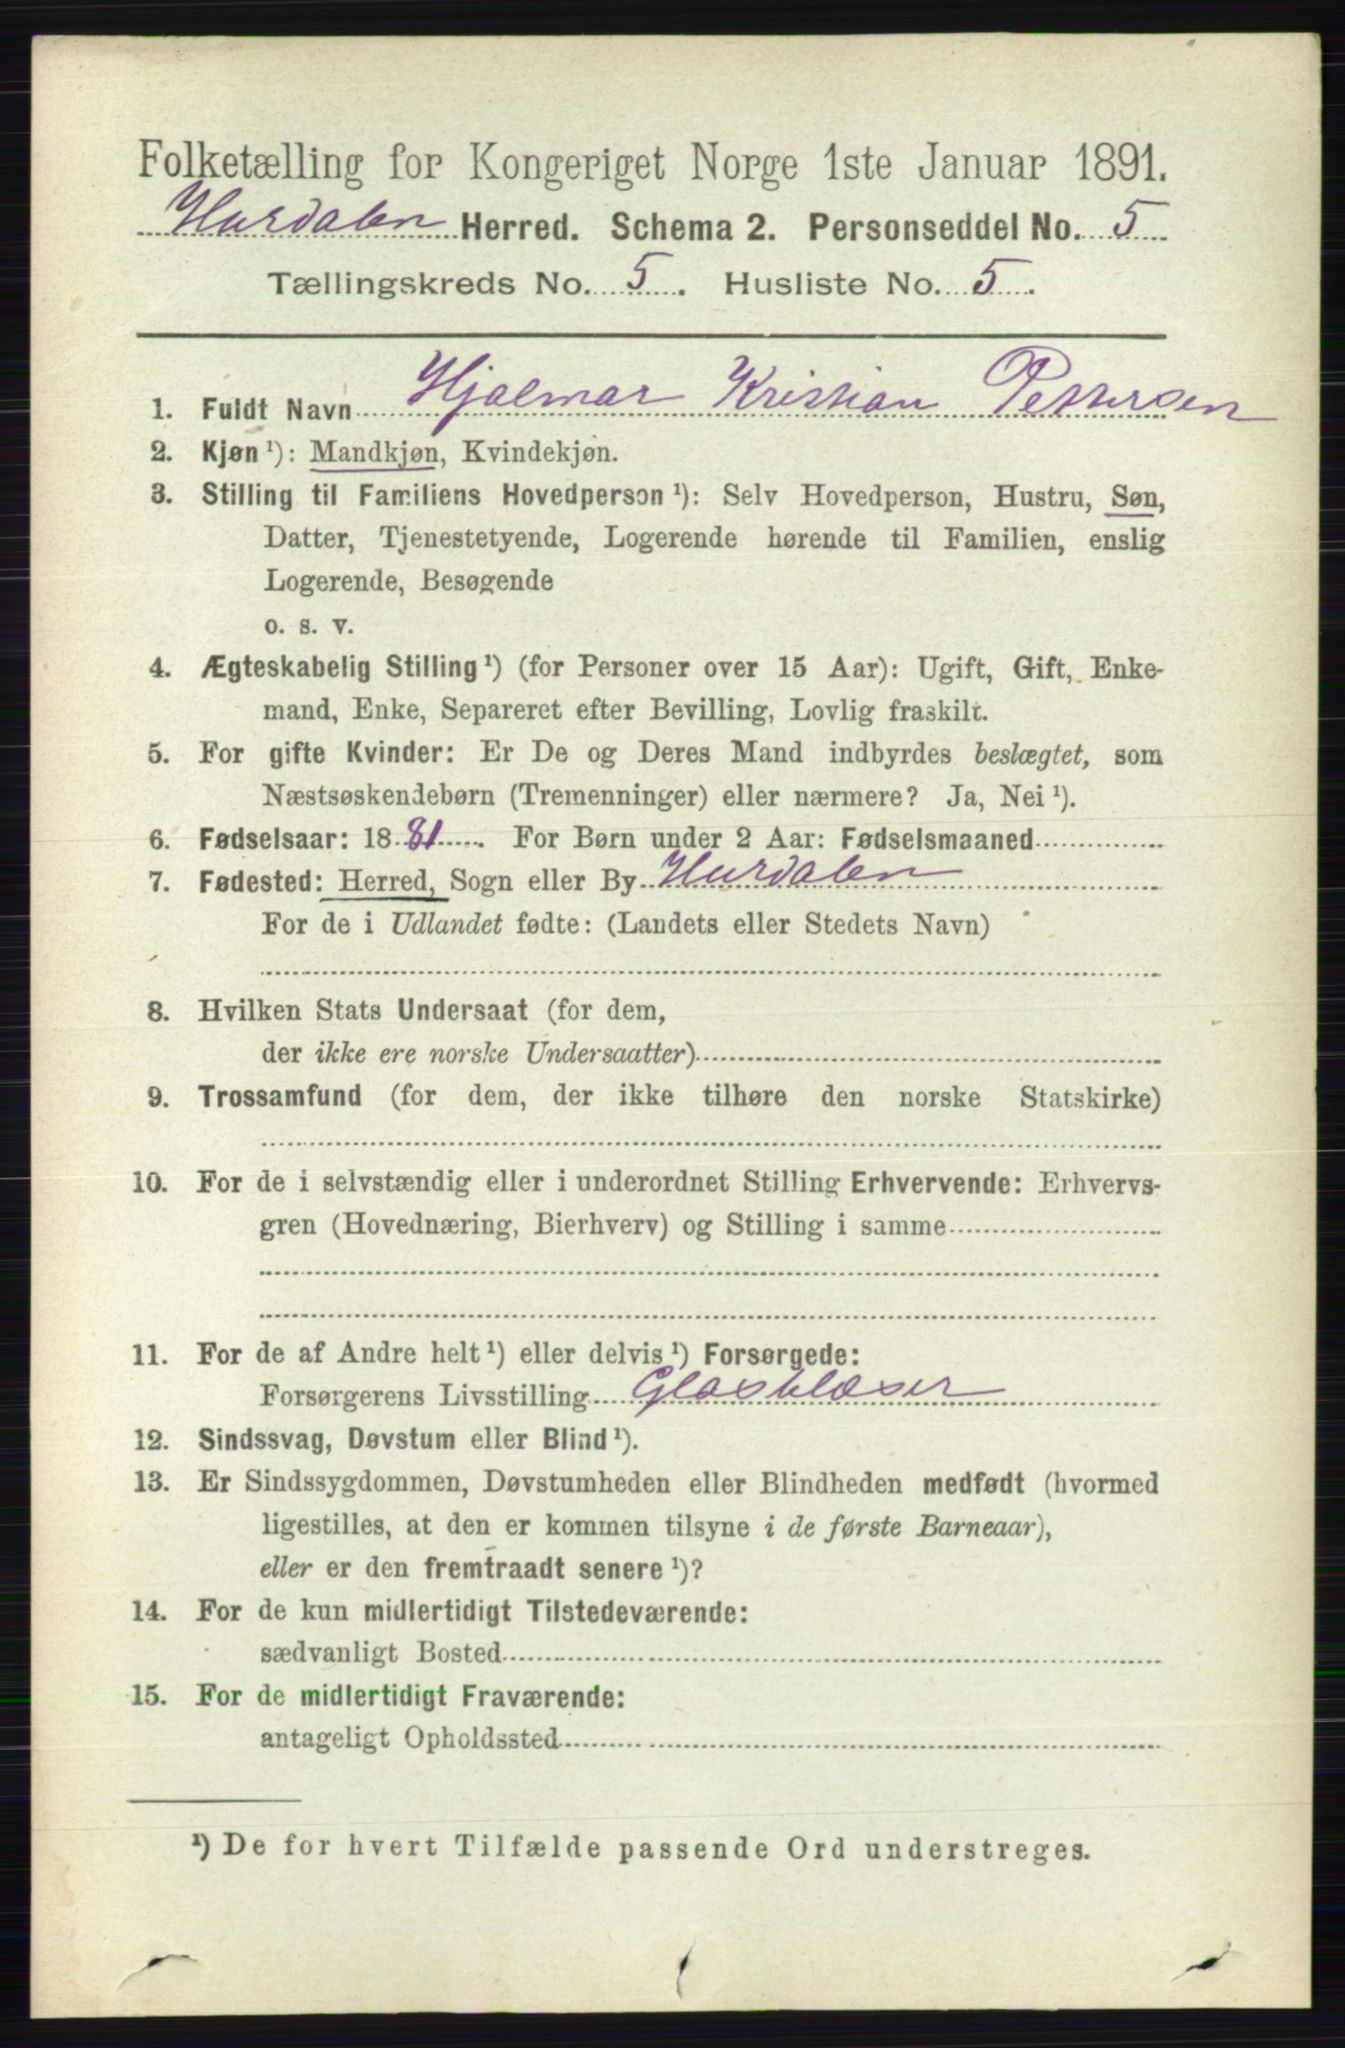 Folketælling for Kongeriget Norge 1ste Januar 1891.
Hurdalen Herred. Schema 2. Personseddel No. 5
Tællingskreds No. 5. Husliste No. 5.
1. Fuldt Navn Hjalmar Kristian Pettersen
2. Kjøn ¹): Mandkjøn, Kvindekjøn.
3. Stilling til Familiens Hovedperson ¹): Selv Hovedperson, Hustru, Søn,
Datter, Tjenestetyende, Logerende hørende til Familien, enslig
Logerende, Besøgende
o. s. v.
4. Ægteskabelig Stilling ¹) (for Personer over 15 Aar): Ugift, Gift, Enke-
mand, Enke, Separeret efter Bevilling, Lovlig fraskilt.
5. For gifte Kvinder: Er De og Deres Mand indbyrdes beslægtet, som
Næstsøskendebørn (Tremenninger) eller nærmere? Ja, Nei ¹).
6. Fødselsaar: 1881. For Børn under 2 Aar: Fødselsmaaned
7. Fødested: Herred, Sogn eller By Hurdalen
For de i Udlandet fødte: (Landets eller Stedets Navn)
8. Hvilken Stats Undersaat (for dem,
der ikke ere norske Undersaatter)
9. Trossamfund (for dem, der ikke tilhøre den norske Statskirke)
10. For de i selvstændig eller i underordnet Stilling Erhvervende: Erhvervs-
gren (Hovednæring, Bierhverv) og Stilling i samme
11. For de af Andre helt ¹) eller delvis ¹) Forsørgede:
Forsørgerens Livsstilling Glasblæser
12. Sindssvag, Døvstum eller Blind ¹).
13. Er Sindssygdommen, Døvstumheden eller Blindheden medfødt (hvormed
ligestilles, at den er kommen tilsyne i de første Barneaar),
eller er den fremtraadt senere ¹)?
14. For de kun midlertidigt Tilstedeværende:
sædvanligt Bosted
15. For de midlertidigt Fraværende:
antageligt Opholdssted
¹) De for hvert Tilfælde passende Ord understreges.